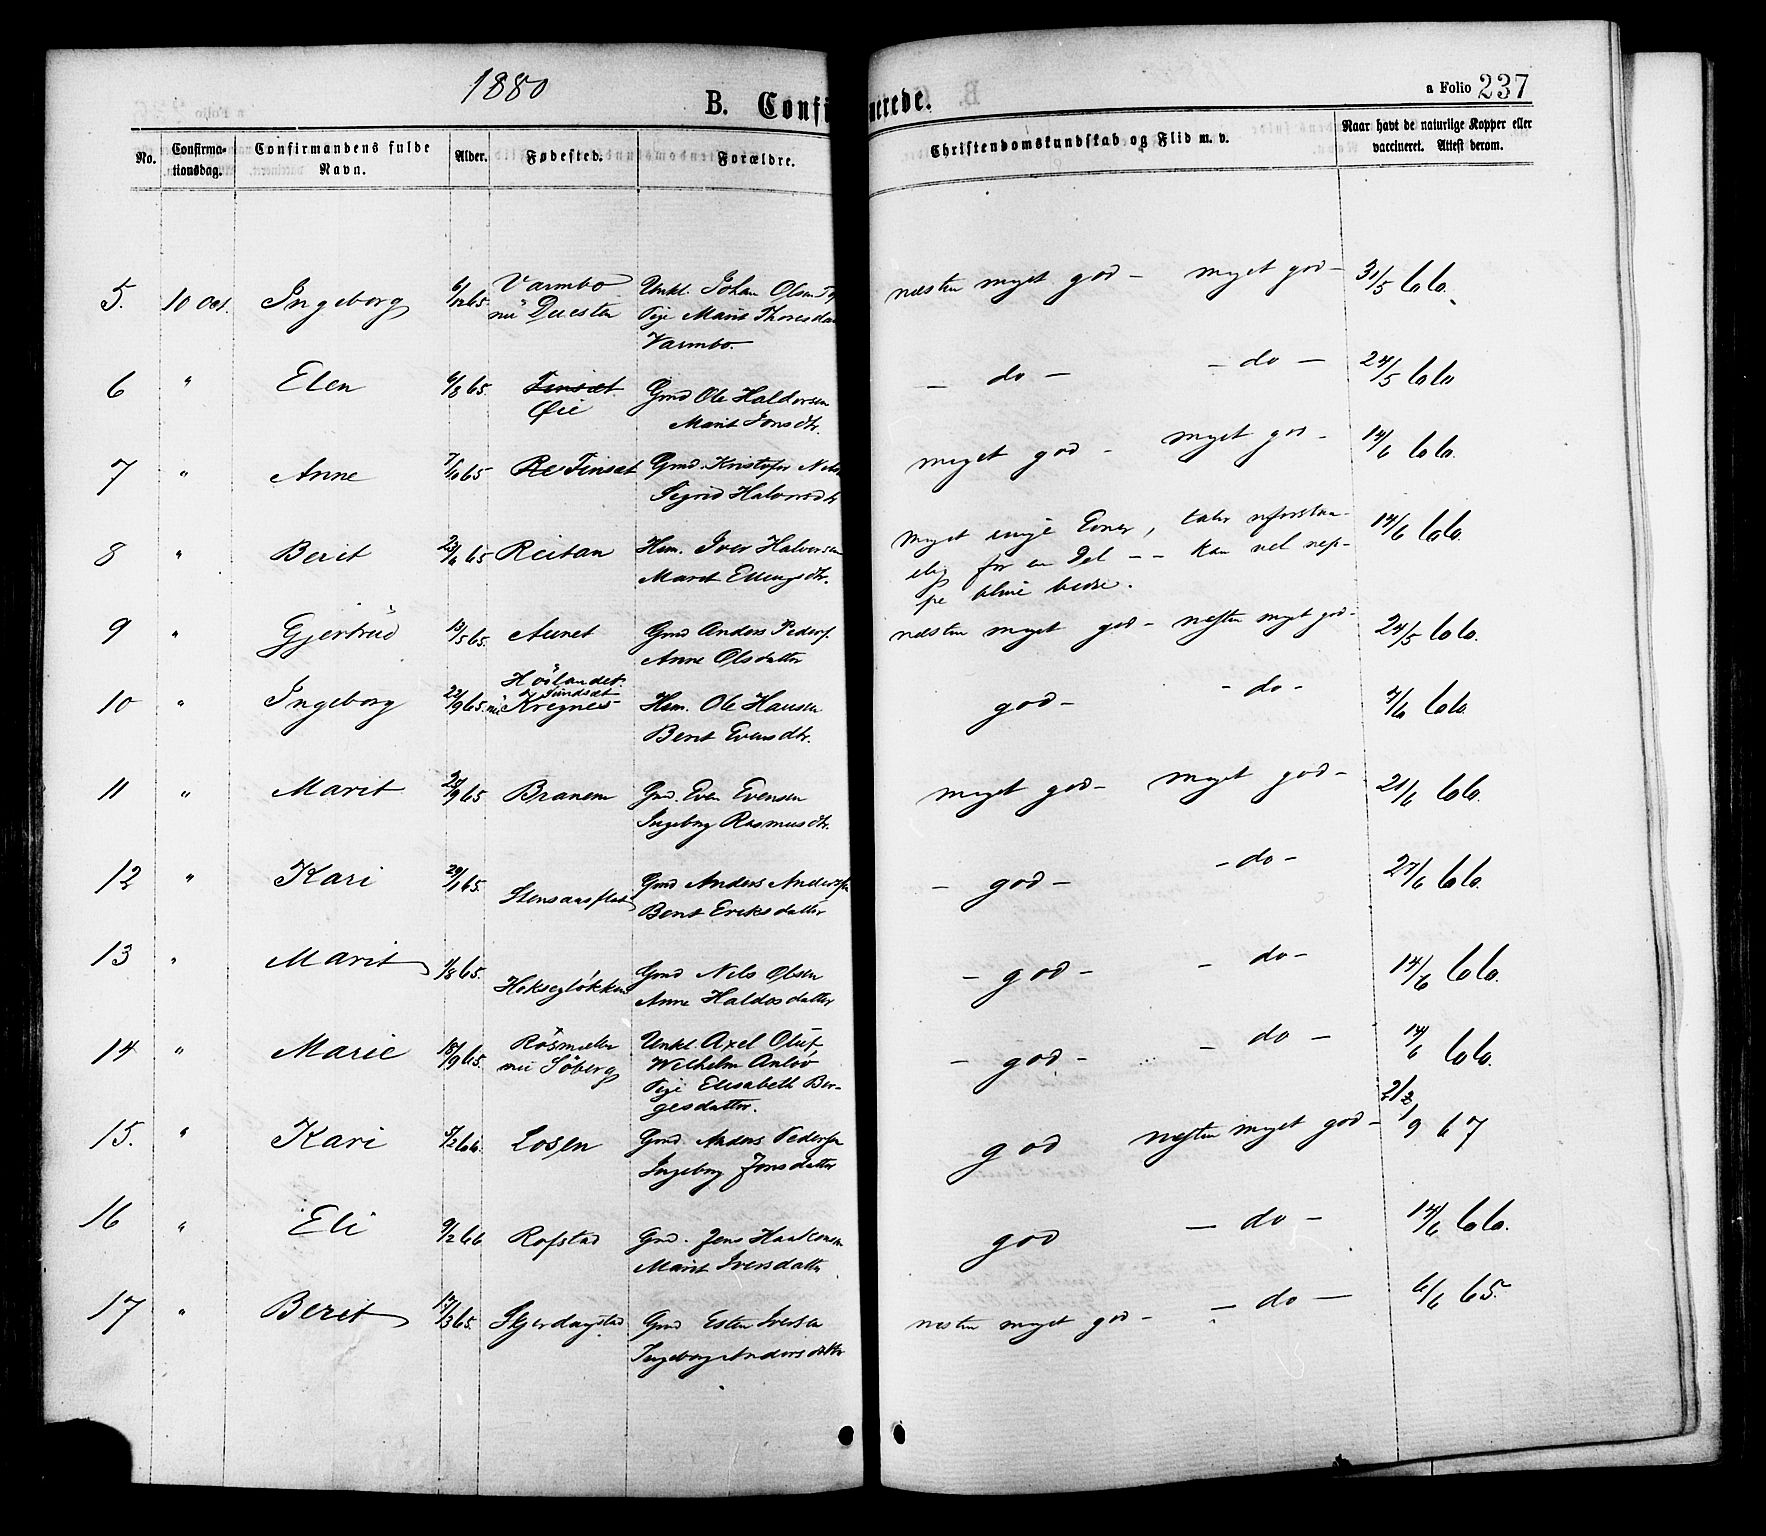 1880
B. Confi
merede.
a Folio 237
No.
Confirma-
tionsdag.
Confirmandens fulde
Navn.
Alder.
Fødested.
Forældre.
Christendomskundskab og Flid m. v.
Naar havt de naturlige Kopper eller
vaccineret. Attest derom.
5. 10 Oct. Ingeborg 6/12 65 Varmbo Unkl. Johan Olsen
nu Duesten Pige Marit Thoresda
Varmbo.
næsten meget god - meget god - 31/5 66.
6 " Elen 6/8 65. Tinsæt Gmd Ole Haldorsen
Øie Marit Jonsdtr.
- do - - do - 24/5 66
7 " Anne 7/10 65 Tinsæt Gmd. Kristofer Nels
Sigrid Halvorsdtr
meget god - meget god - 14/6 66.
8 " Berit 23/6 65 Reitan Hsm. Iver Halvorsen
Marit Ellingsdtr.
Meget ringe Evner, taler uforstaa-
elig for en Del - - kan vel nep-
pe blive bedre.
14/6 66.
9 " Gjertrud 13/5 65. Aunet Gmd Anders Peders.
Anne Olsdatter
næsten meget god - næsten meget god - 24/5 66.
10 " Ingeborg 22/9 65. Höilandet Hsm. Ole Hansen
Tindsæt
nu Kregnes Berit Evensdtr.
god - - do - 7/6 66.
11 " Marit 27/9 65 Branem Gmd. Even Evensen
Ingeborg Rasmusdtr.
meget god - meget god - 21/6 66.
12 " Kari 29/1 65. Stensaasflat Gmd Anders Andersen
Berit Eriksdatter
- god - - do - 27/6 66.
13 " Marit 1/8 65. Hoksegløkken Gmd Nels Olsen
Anne Haldosdatter
- god - - do - 14/6 66.
14 " Marie 18/9 65. Rösmælen Unkl. Axel Oluf
nu Söberg Wilhelm Anlöv
Pige Elisabeth Ber-
gesdatter.
- god - - do - 14/6 66.
15. " Kari 5/2 66. Losen Gmd. Anders Pedersen
Ingeborg Jonsdatter
god næsten meget god - 21/9 67
16 " Eli 9/2 66 Rofstad Gmd. Jens Haakonsen
Marit Iversdatter
god - do - 14/6 66.
17 " Berit 17/3 65. Skjerdagstad Gmd Esten Iversen
Ingeborg Andersdatter
næsten meget god - - do - 6/6 65.